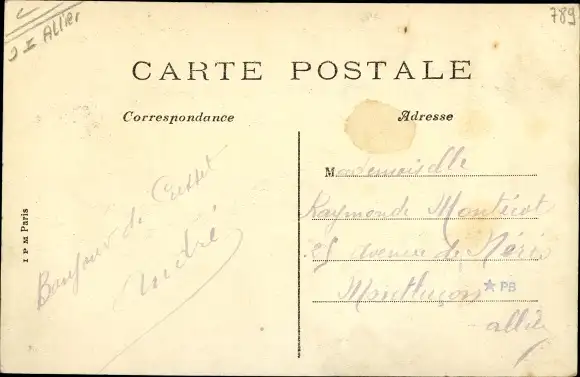 Allier
789
CARTE POSTALE
Correspondance
Adresse
Mademoiselle
Raymonde Montécot
25 Avenue de Néris
Montluçon
Allier
Bonjour de Cusset
André
I P M Paris
PB